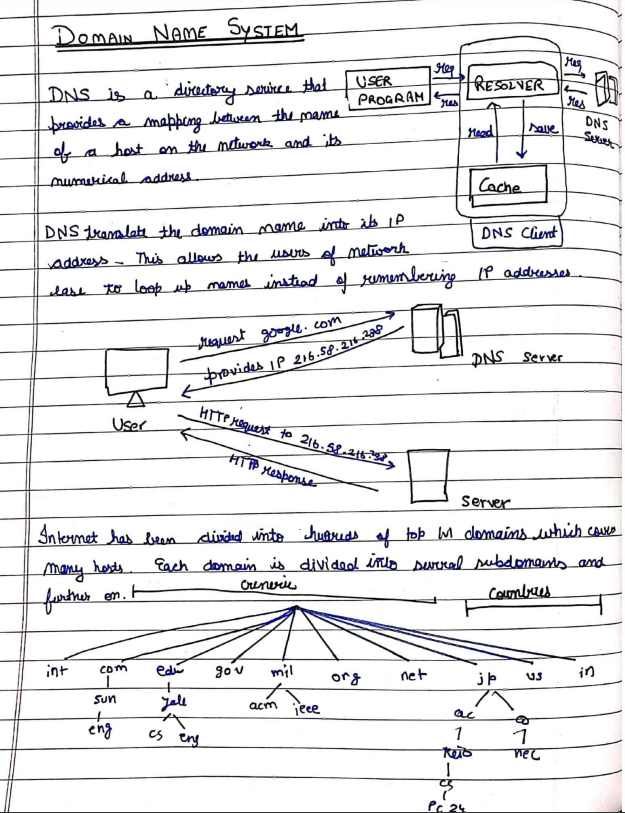 DOMAIN NAME SYSTEM
DNS is a directory service that
provides a mapping between the name
of a host on the network and its
numerical address.
USER
PROGRAM
req
res
RESOLVER
req
res
DNS
Server
read
save
Cache
DNS Client
DNS translate the domain name into its IP
address - This allows the users of network
ease to loop up names instead of remembering IP addresses.
request google.com
provides IP 216.58.216.238
DNS Server
User
HTTP request to 216.58.216.238
HTTP response
Server
Internet has been divided into of top domains which
many hosts. Each domain is divided into several subdomains and
further on.
Generic
Countries
int com edu gov mil org net jp us in
sun yale acm ieee ac co
eng cs eng keio nec
cs
PC 24